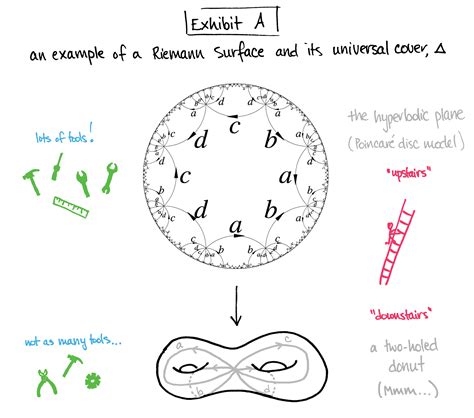 Exhibit A
an example of a Riemann Surface and its universal cover, Δ
lots of tools!
the hyperbolic plane
(Poincaré disc model)
"upstairs"
c
d
b
c
a
d
b
a
a
c
d
b
a
d
c
b
"downstairs"
not as many tools...
a two-holed
donut
(Mmm...)
a
c
b
d